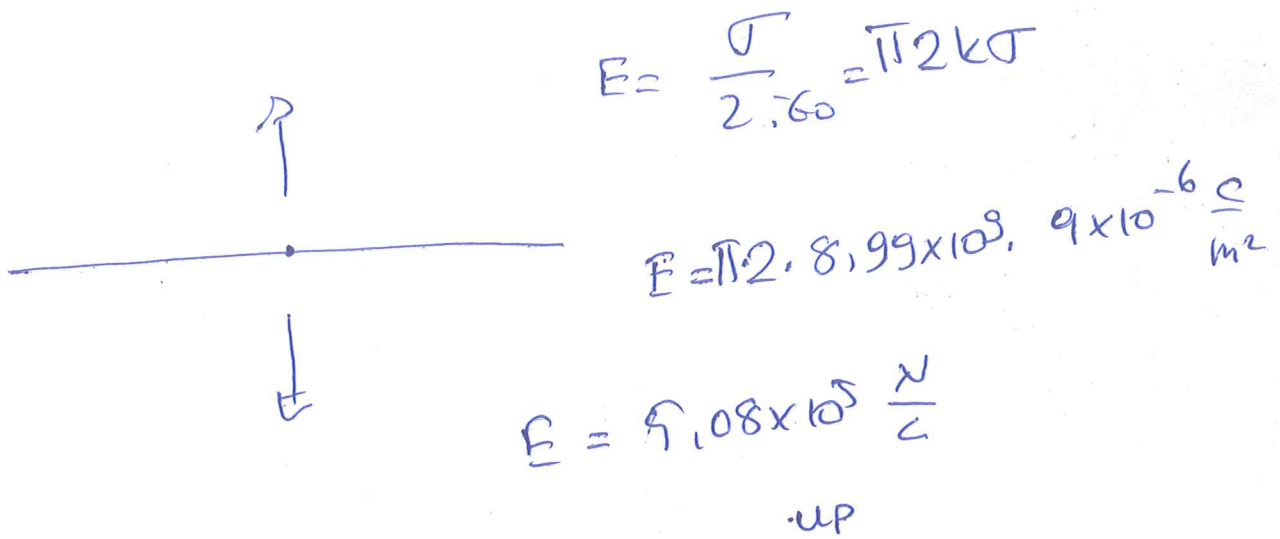 E = σ / 2·ϵ0 = π2kσ
E = π·2·8,99x10⁹. 9x10⁻⁶ C/m²
E = 5,08x10⁵ N/C
·up